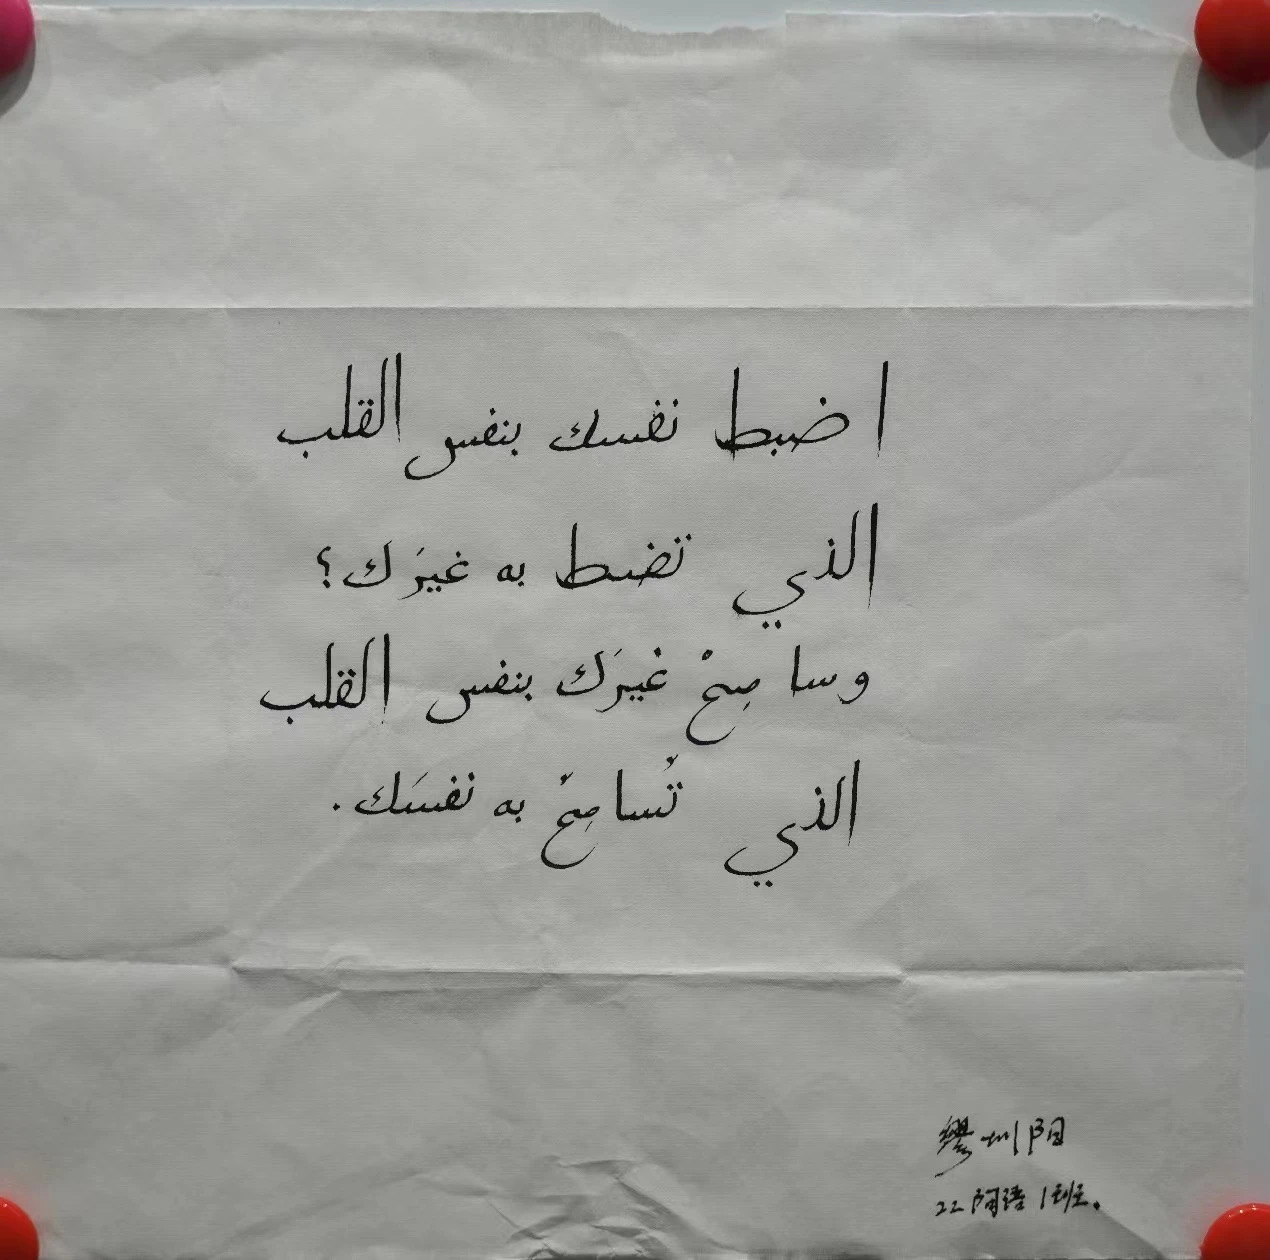 اضبط نفسك بنفس القلب
الذي تضبط به غيرَك؟
وسامِحْ غيرَك بنفس القلب
الذي تُسامِحْ به نفسَك.
缪圳阳
22 阿语 1班.